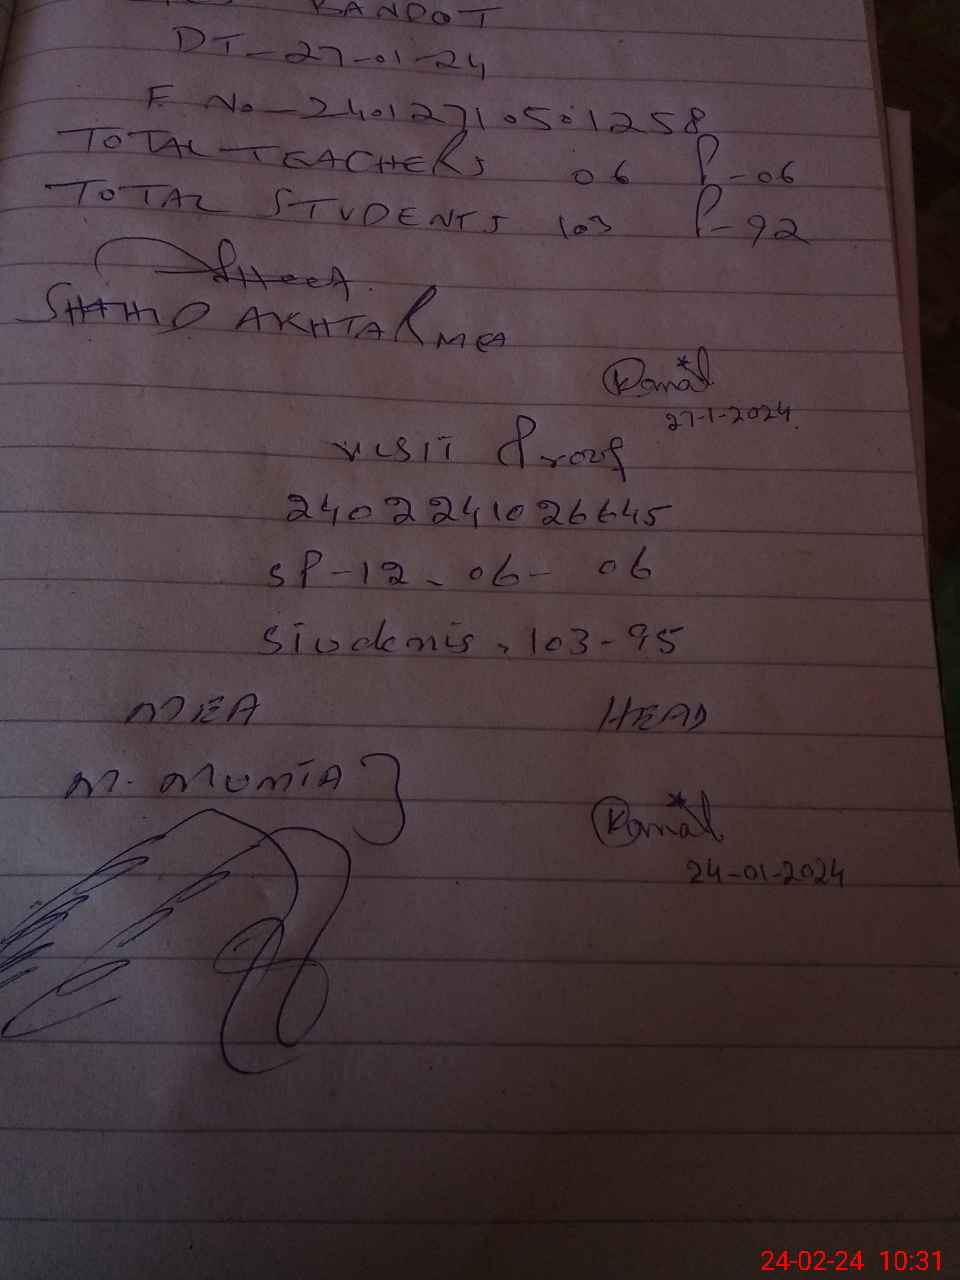 KANDOT
DT-27-01-24
F No-24012710501258
TOTAL TEACHERS 06 P-06
TOTAL STUDENTS 103 P-92
SHAHID AKHTAR MEA
Kamal
27-1-2024.
VISIT Proof
24022410 26645
SP-12- 06- 06
Students, 103-95
MEA HEAD
M. MUMTA
Kamal
24-01-2024
24-02-24 10:31